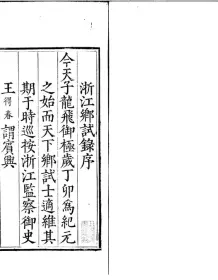 浙江鄉試錄序
今天子龍飛御極歲丁卯爲紀元
之始而天下鄉試士適維其
期于時巡按浙江監察御史
王得春謂賓興